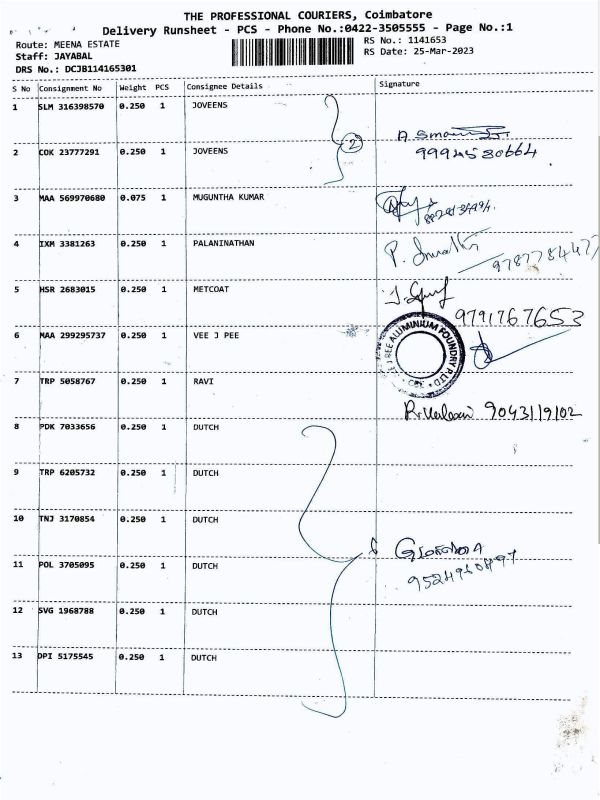 THE PROFESSIONAL COURIERS, Coimbatore
Delivery Runsheet - PCS - Phone No.:0422-3505555 - Page No.:1
Route: MEENA ESTATE
RS No.: 1141653
Staff: JAYABAL
RS Date: 25-Mar-2023
DRS No.: DCJB114165301
S No Consignment No Weight PCS Consignee Details Signature
1 SLM 316398570 0.250 1 JOVEENS
2
2 COK 23777291 0.250 1 JOVEENS 9994530664
3 MAA 569970680 0.075 1 MUGUNTHA KUMAR
4 IXM 3381263 0.250 1 PALANINATHAN
5 HSR 2683015 0.250 1 METCOAT
9791767653
6 MAA 299295737 0.250 1 VEE J PEE
VEE J PEE ALUMINIUM FOUNDRY P LTD CBE
7 TRP 5058767 0.250 1 RAVI
9043119102
8 PDK 7033656 0.250 1 DUTCH
9 TRP 6205732 0.250 1 DUTCH
10 TNJ 3170854 0.250 1 DUTCH
11 POL 3705095 0.250 1 DUTCH
12 SVG 1968788 0.250 1 DUTCH
13 DPI 5175545 0.250 1 DUTCH